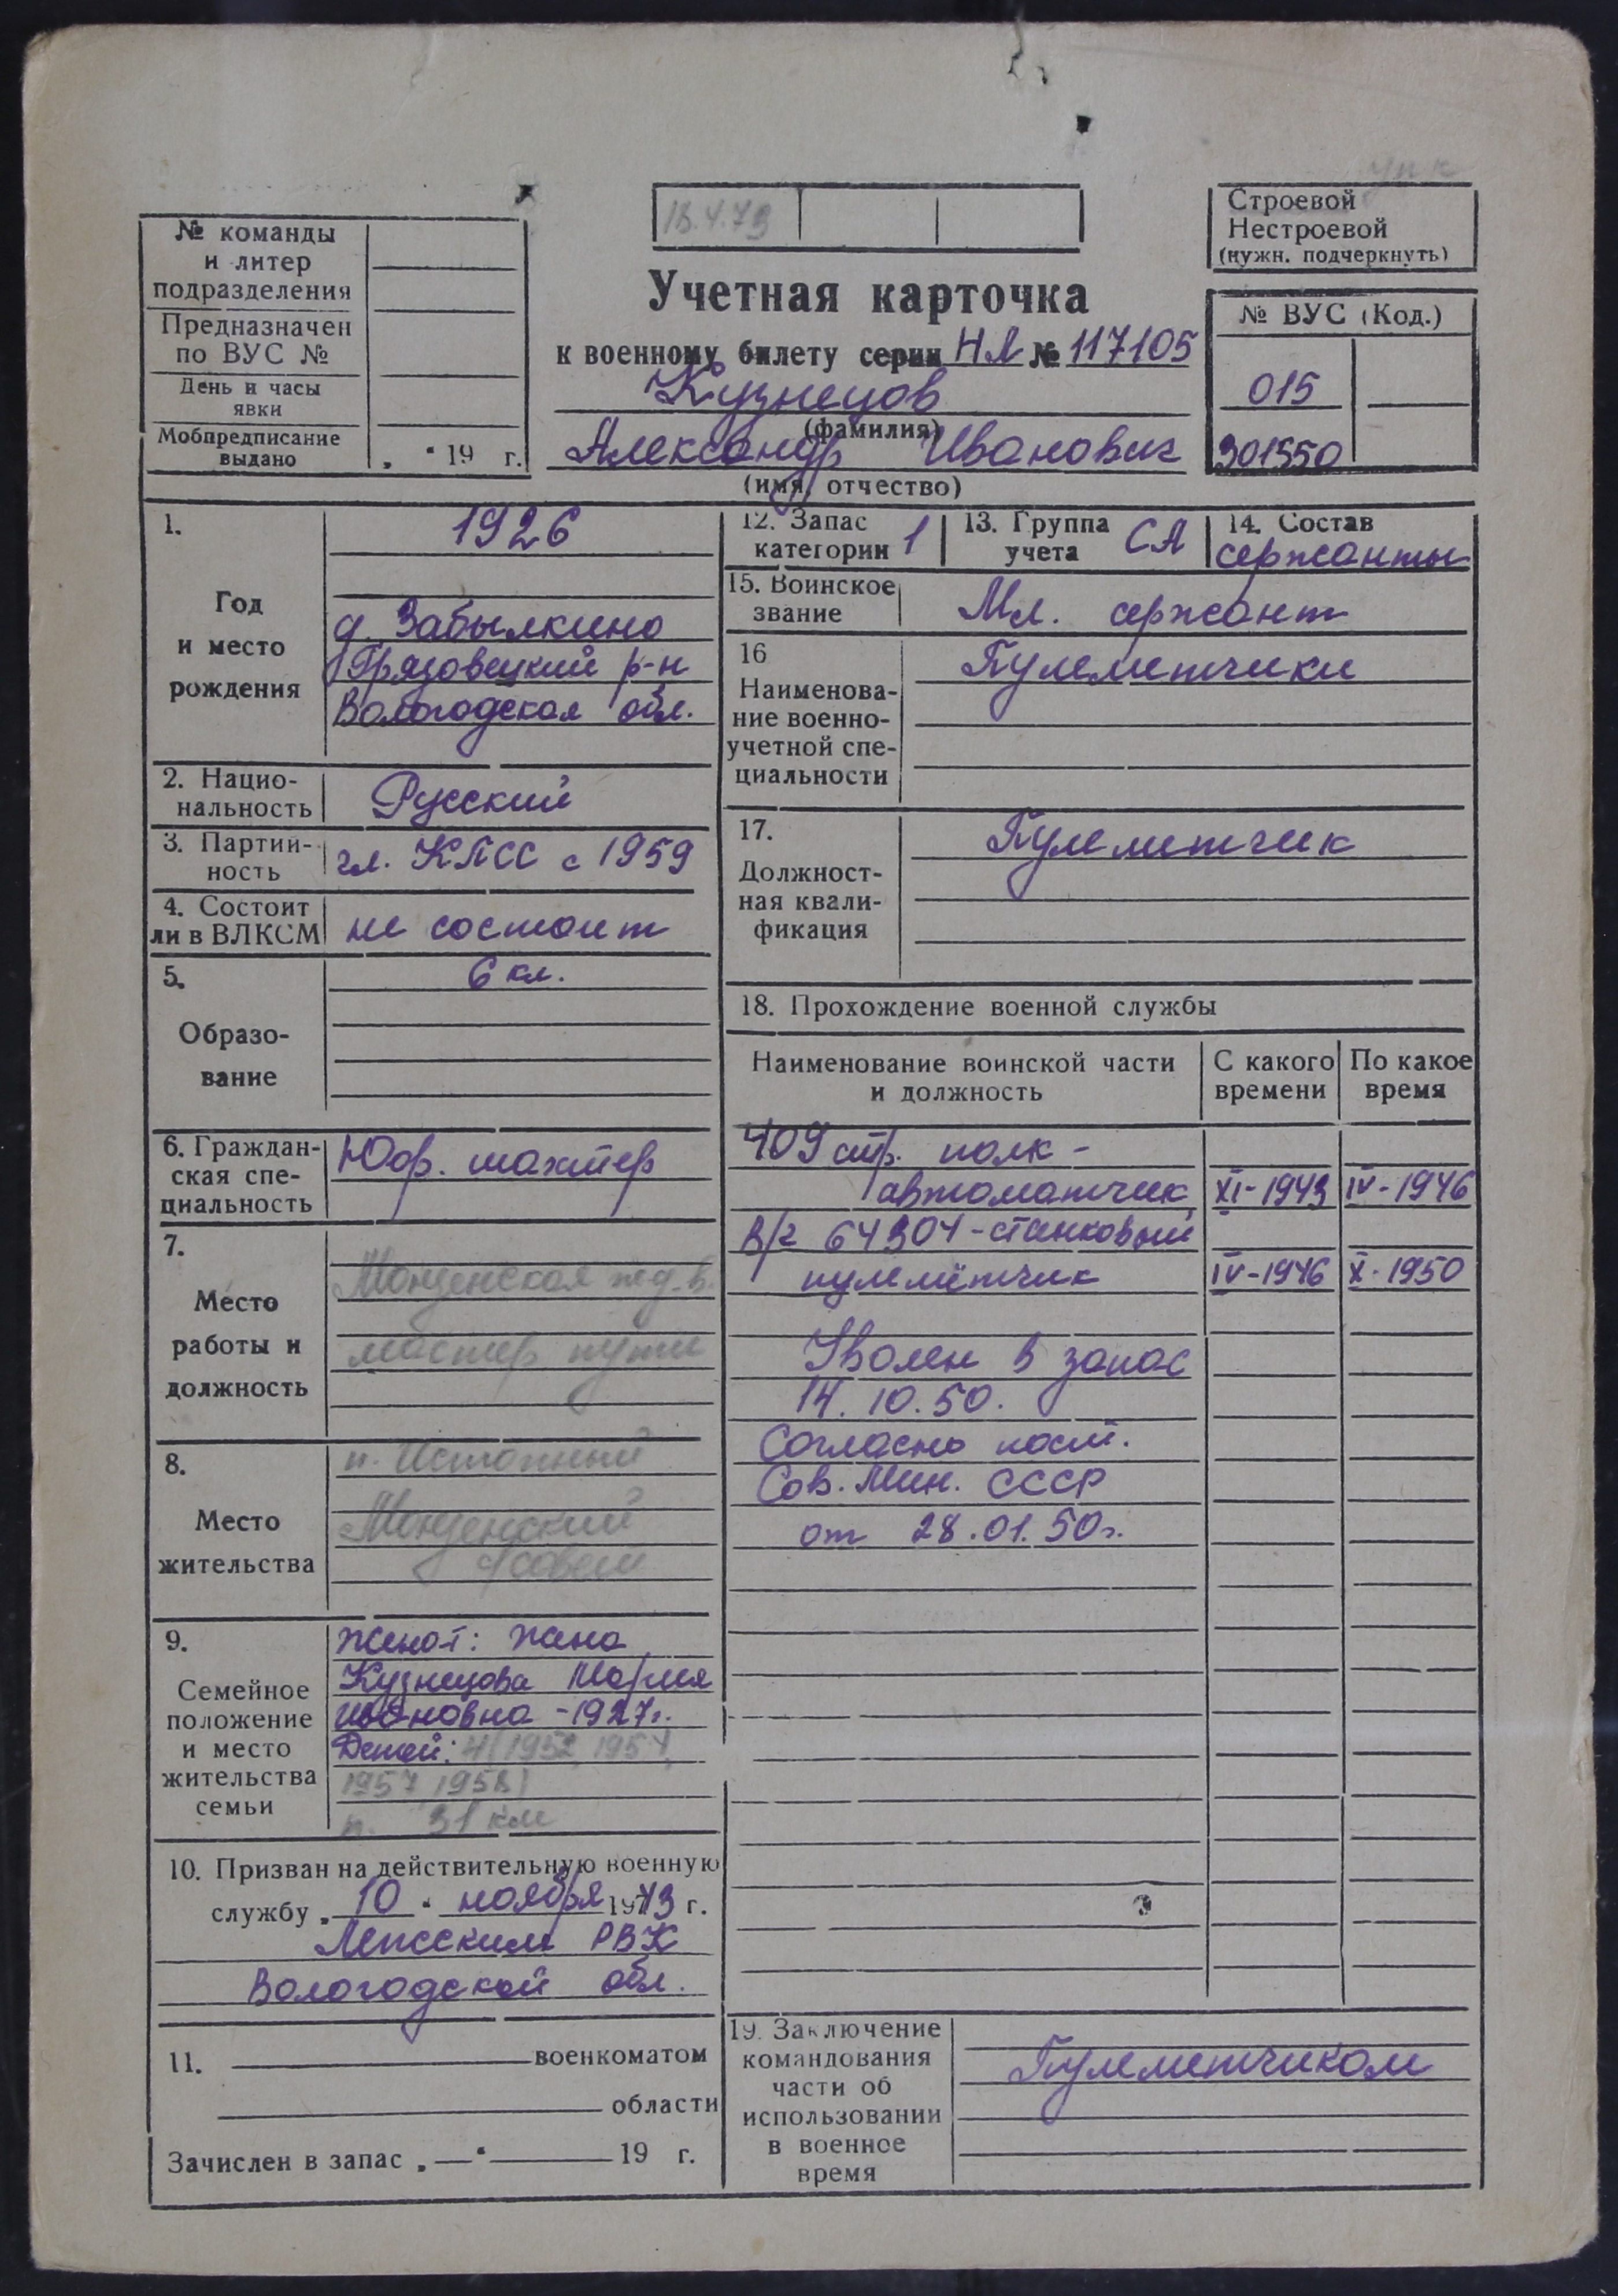 18.4.73
Строевой
Нестроевой
(нужн. подчеркнуть)
№ команды
и литер
подразделения
Предназначен
по ВУС №
День и часы
явки
Мобпредписание
выдано „ “ 19 г.
Учетная карточка
к военному билету серии НЛ № 117105
Кузнецов
(фамилия)
Александр Иванович
(имя, отчество)
№ ВУС (Код.)
015
301550
1.
Год
и место
рождения
1926
д. Забылкино
Грязовецкий р-н
Вологодская обл.
2. Нацио-
нальность
Русский
3. Партий-
ность
чл. КПСС с 1959
4. Состоит
ли в ВЛКСМ
не состоит
5.
Образо-
вание
6 кл.
6. Граждан-
ская спе-
циальность
шахтер
7.
Место
работы и
должность
Монзенская жд.
мастер пути
8.
Место
жительства
п. Истопный
Монзенский
9.
Семейное
положение
и место
жительства
семьи
Женат: жена
Кузнецова Мария
Ивановна - 1927г.
Детей: 4 (1952, 1954,
1957, 1958)
п. 31 км
10. Призван на действительную военную
службу „ 10 “ ноября 1943 г.
РВК
Вологодской обл.
11. военкоматом
области
Зачислен в запас „ — “ 19 г.
12. Запас
категории 1
13. Группа
учета СА
14. Состав
сержанты
15. Воинское
звание
Мл. сержант
16
Наименова-
ние военно-
учетной спе-
циальности
Пулеметчики
17.
Должност-
ная квали-
фикация
Пулеметчик
18. Прохождение военной службы
Наименование воинской части
и должность
С какого
времени
По какое
время
409 стр. полк -
автоматчик XI-1943 IV-1946
В/ч 64304 - станковый
пулемётчик IV-1946 X-1950
Уволен в запас
14.10.50.
Согласно пост.
Сов. Мин. СССР
от 28.01.50г.
19. Заключение
командования
части об
использовании
в военное
время
Пулеметчиком